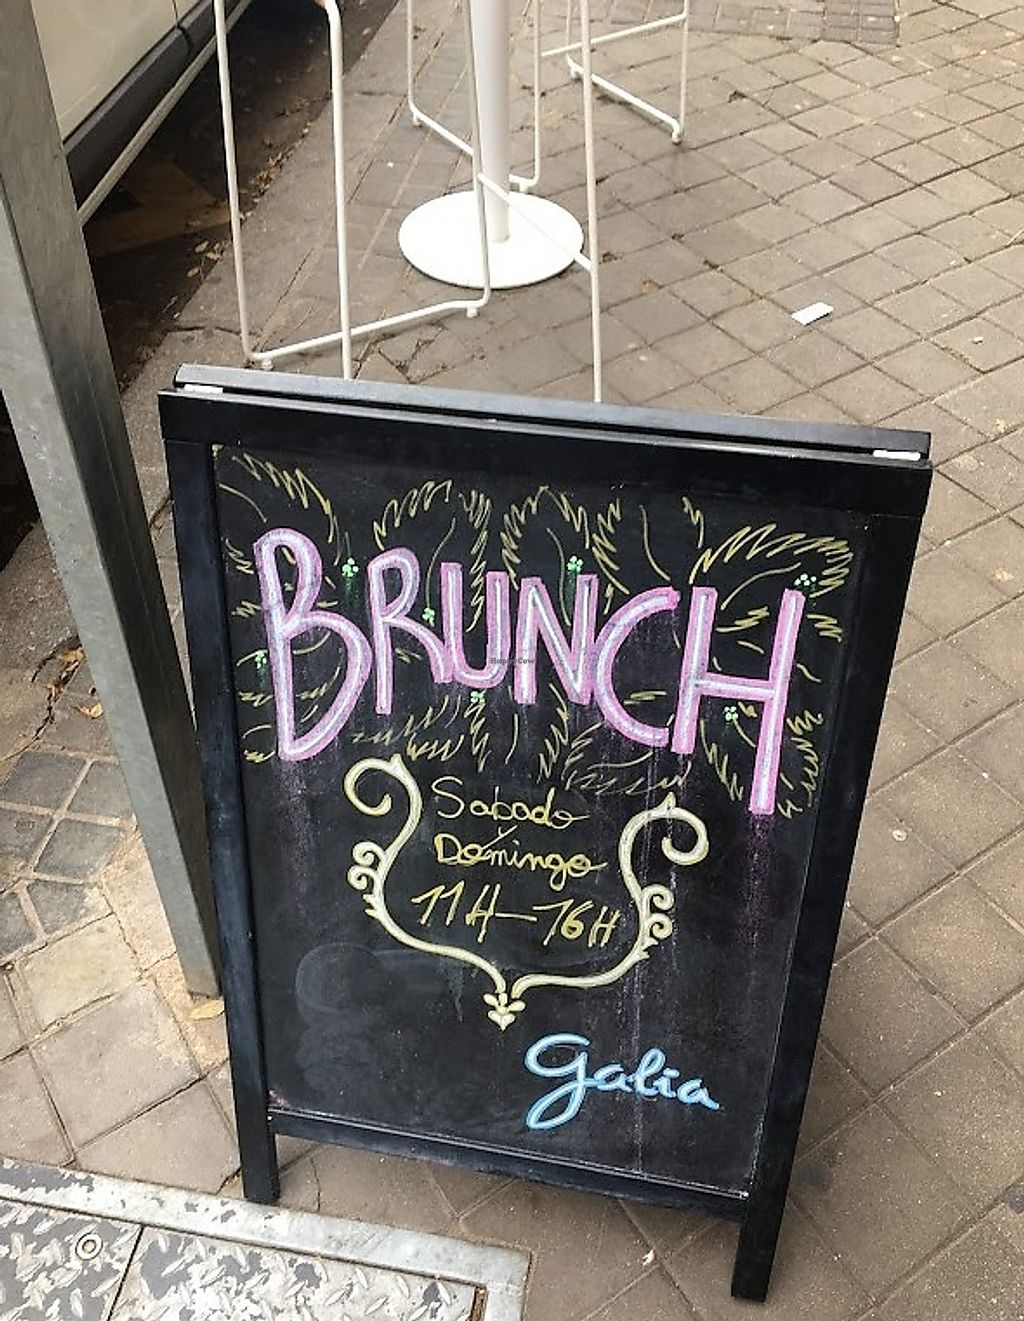 BRUNCH
HappyCow
Sabado
y
Domingo
11H-16H
Galia